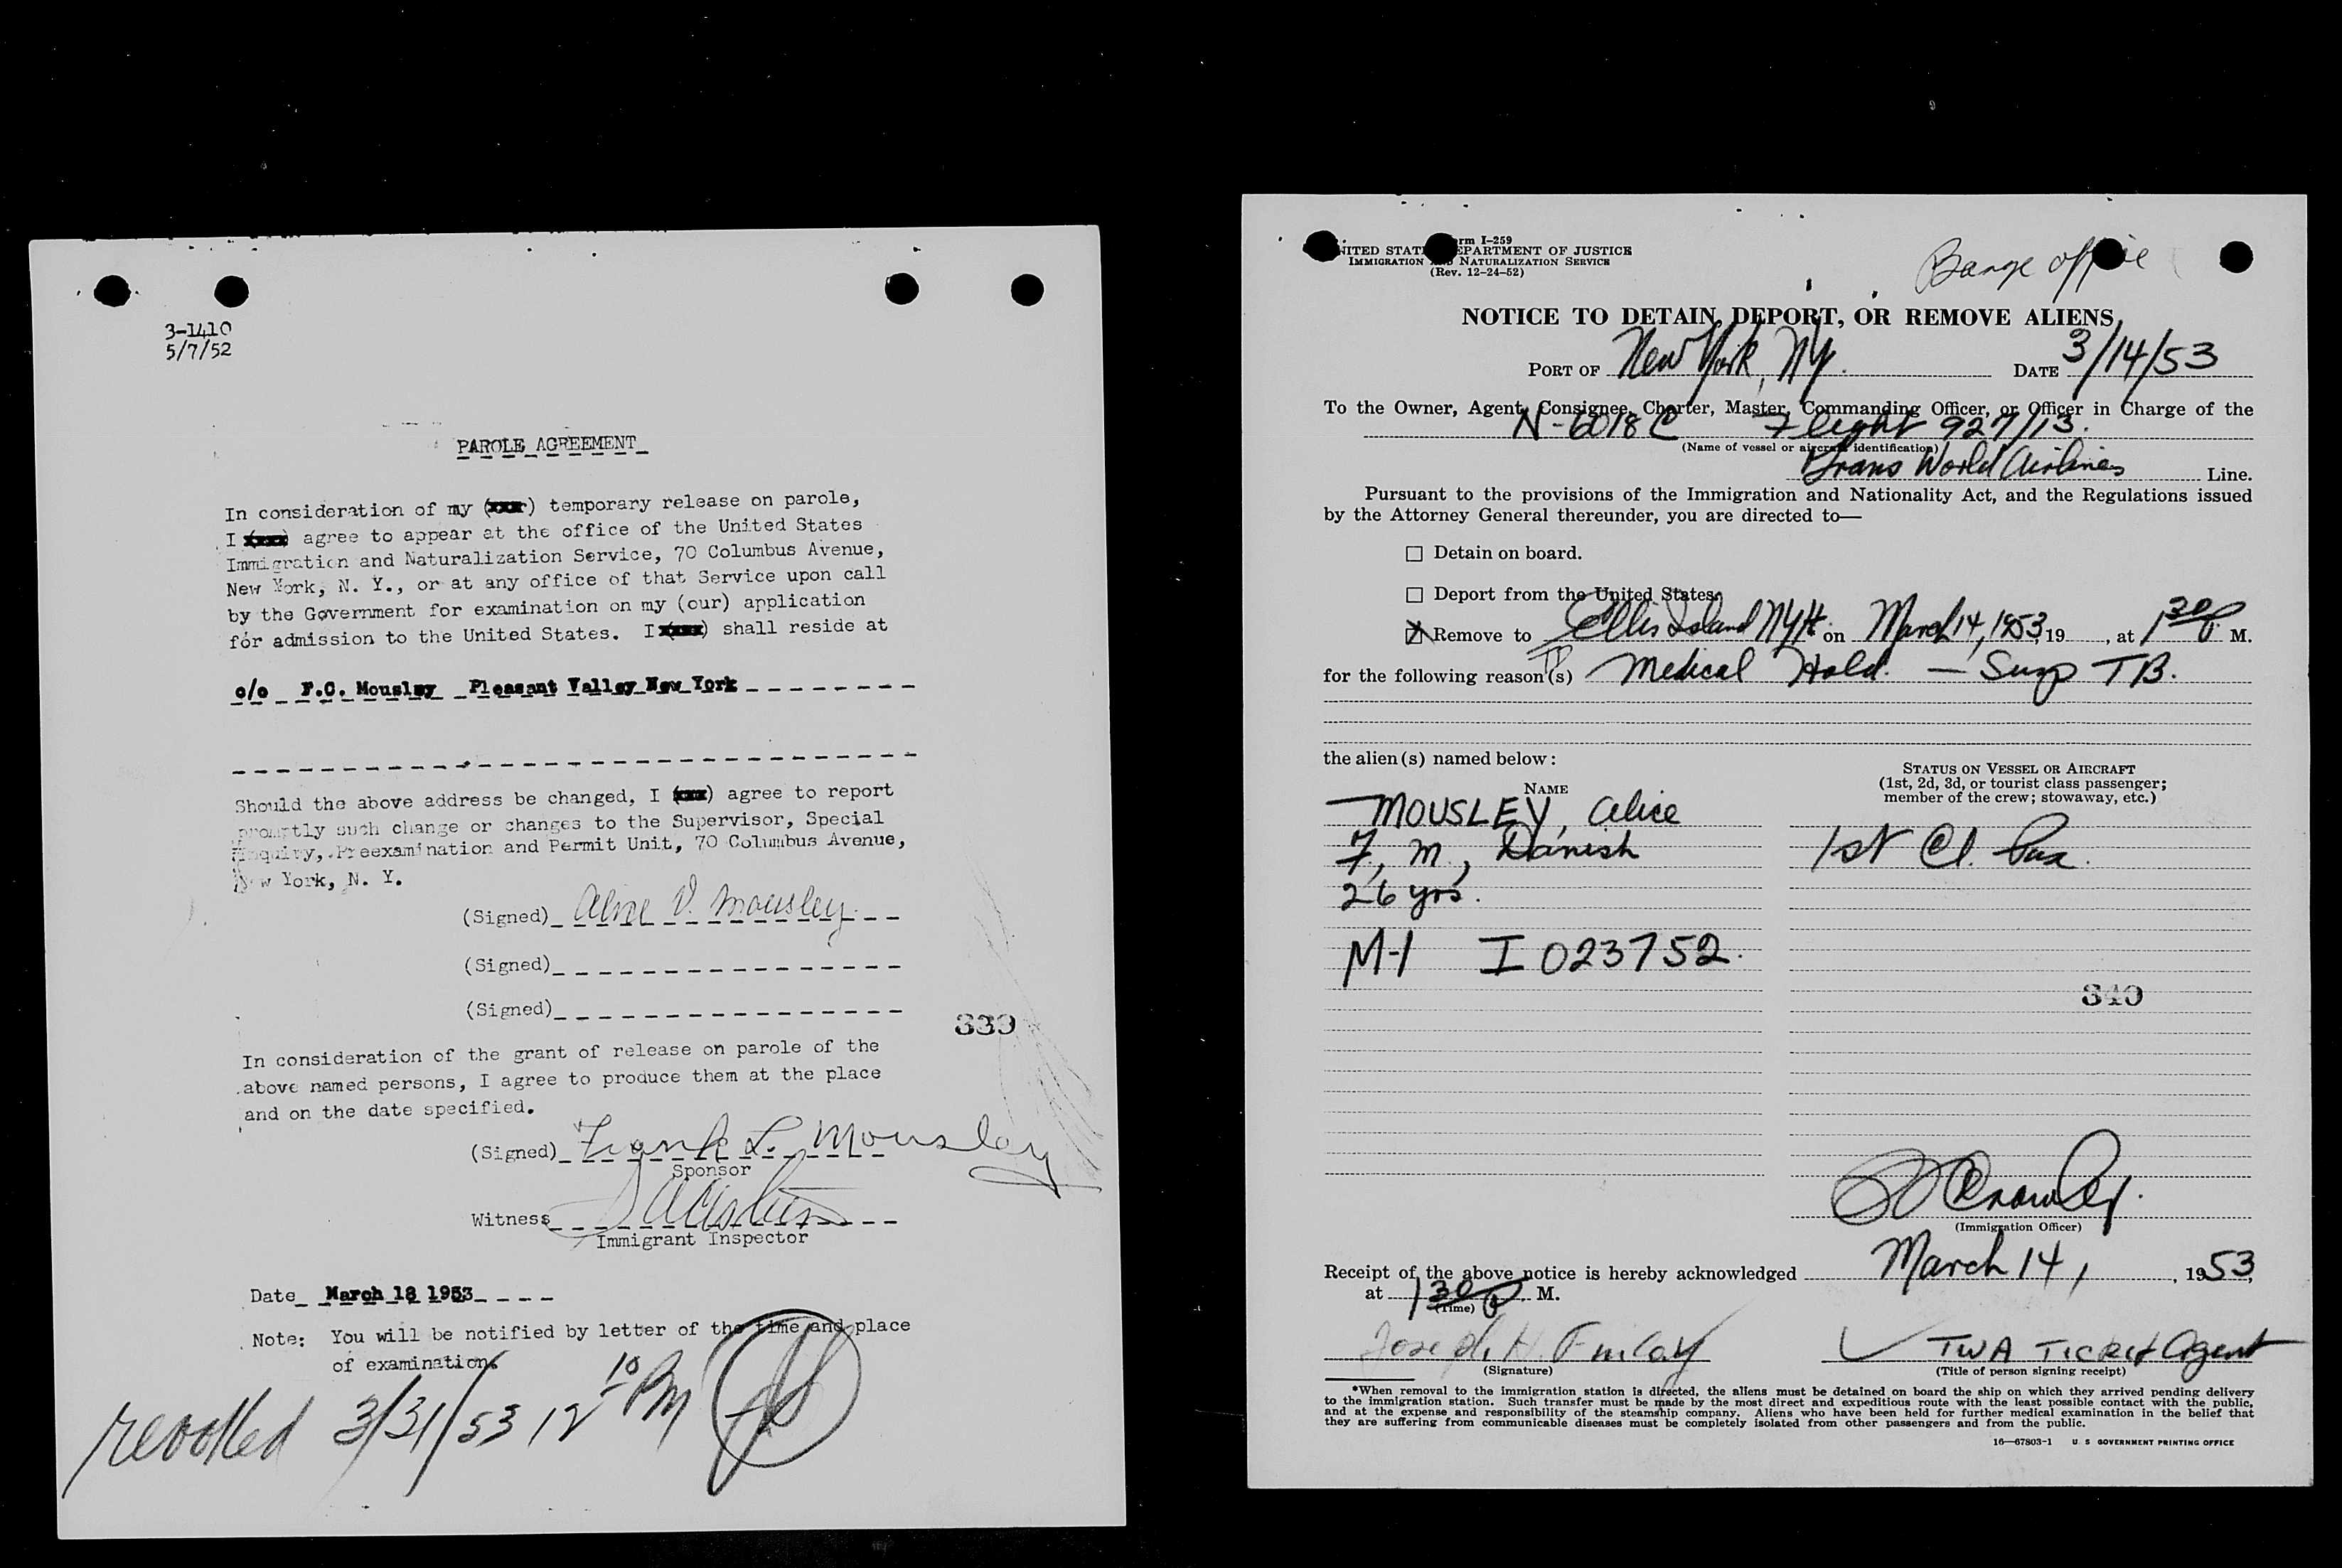 3-1410
5/7/52
PAROLE AGREEMENT
In consideration of my (xxx) temporary release on parole,
I (xxx) agree to appear at the office of the United States
Immigration and Naturalization Service, 70 Columbus Avenue,
New York, N. Y., or at any office of that Service upon call
by the Government for examination on my (our) application
for admission to the United States. I (xxx) shall reside at
c/o F.C. Mousley Pleasant Valley New York
Should the above address be changed, I (xxx) agree to report
promptly such change or changes to the Supervisor, Special
Inquiry, Preexamination and Permit Unit, 70 Columbus Avenue,
New York, N. Y.
(Signed) Alice V. Mousley
(Signed)
(Signed)
339
In consideration of the grant of release on parole of the
above named persons, I agree to produce them at the place
and on the date specified.
(Signed) Frank L. Mousley
Sponsor
Witness
Immigrant Inspector
Date March 18 1953
Note: You will be notified by letter of the time and place
of examination.
revoked 3/31/53 12 10 PM
Form I-259
UNITED STATES DEPARTMENT OF JUSTICE
IMMIGRATION AND NATURALIZATION SERVICE
(Rev. 12-24-52)
Barge office
NOTICE TO DETAIN, DEPORT, OR REMOVE ALIENS
PORT OF New York, NY. DATE 3/14/53
To the Owner, Agent, Consignee, Charter, Master, Commanding Officer, or Officer in Charge of the
N-6018C Flight 927/13.
(Name of vessel or aircraft identification)
Trans World Airlines Line.
Pursuant to the provisions of the Immigration and Nationality Act, and the Regulations issued
by the Attorney General thereunder, you are directed to—
Detain on board.
Deport from the United States.
Remove to Ellis Island NYH on March 14, 1953, 19 , at 1 30 P M.
for the following reason(s) Medical Hold. — Susp TB.
the alien(s) named below:
NAME
STATUS ON VESSEL OR AIRCRAFT
(1st, 2d, 3d, or tourist class passenger;
member of the crew; stowaway, etc.)
MOUSLEY, Alice
F, M, Danish
1st Cl. Pax.
26 yrs.
M-1 I 023752.
340
Crowley
(Immigration Officer)
Receipt of the above notice is hereby acknowledged March 14, , 1953,
at 1 30 P. M.
(Time)
Joseph H. Finlay TWA Ticket Agent
(Signature) (Title of person signing receipt)
*When removal to the immigration station is directed, the aliens must be detained on board the ship on which they arrived pending delivery
to the immigration station. Such transfer must be made by the most direct and expeditious route with the least possible contact with the public,
and at the expense and responsibility of the steamship company. Aliens who have been held for further medical examination in the belief that
they are suffering from communicable diseases must be completely isolated from other passengers and from the public.
16—67803-1 U. S. GOVERNMENT PRINTING OFFICE